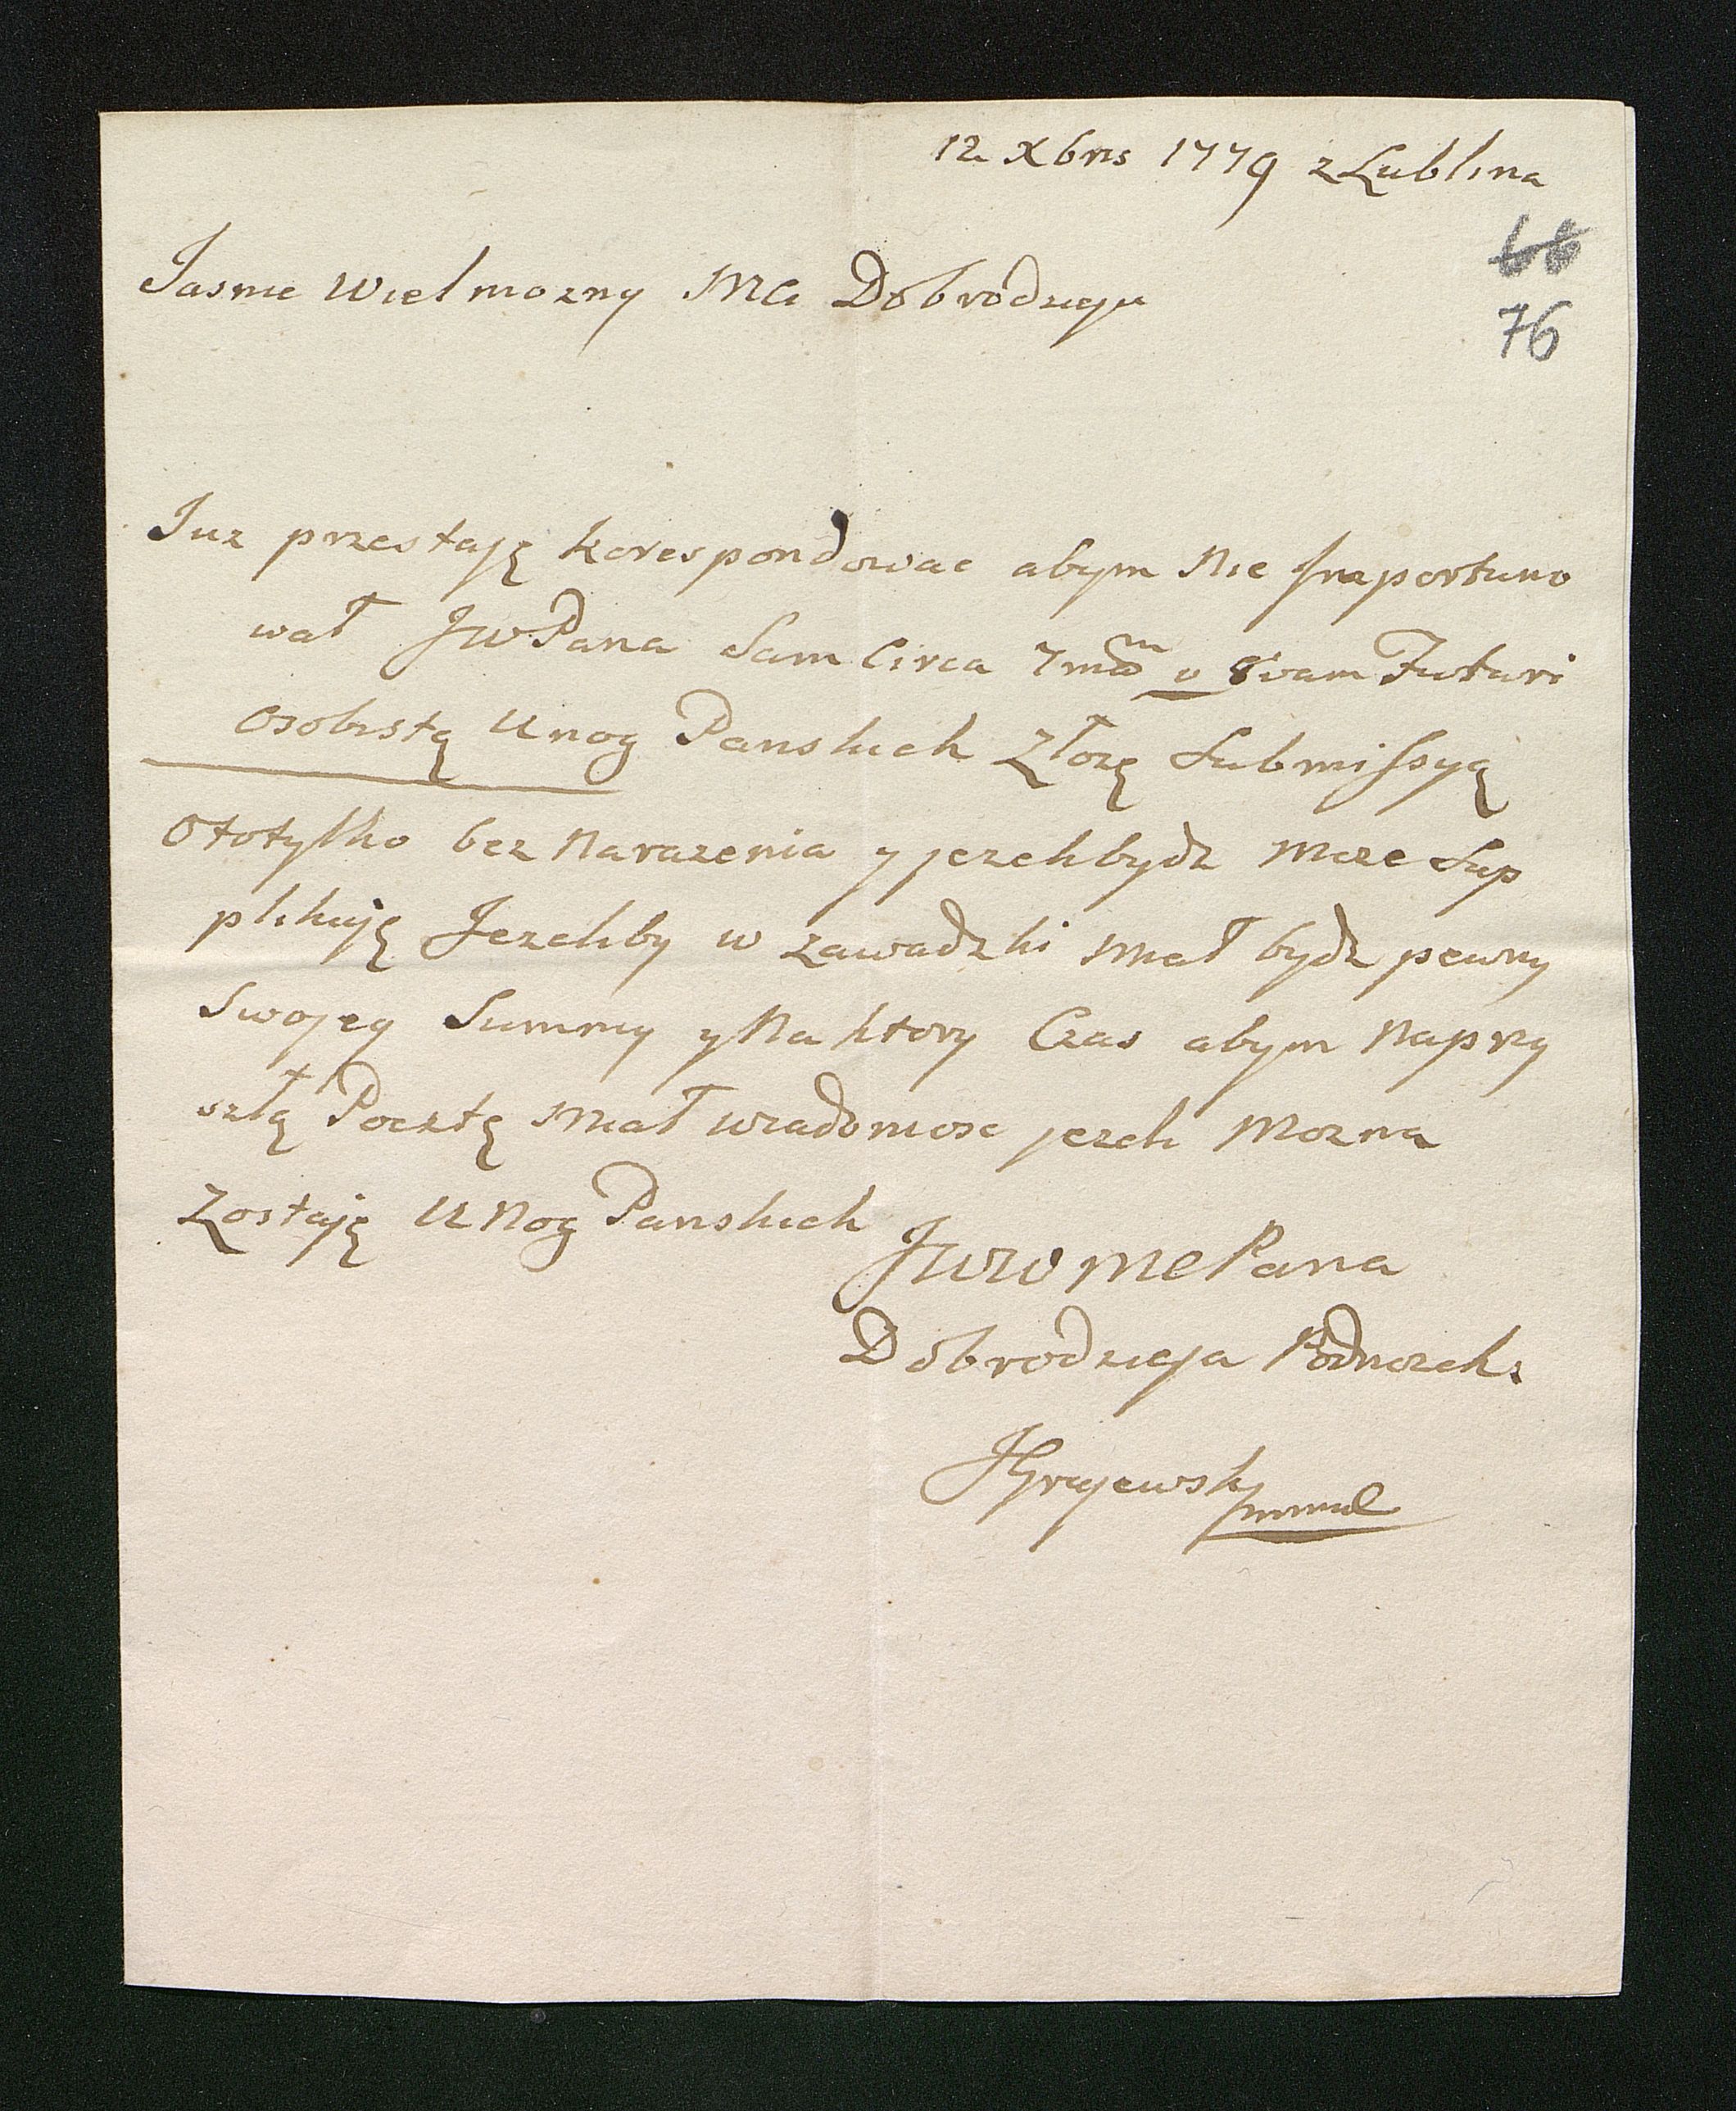 12 Xbris 1779 z Lublina
66
76
Jasnie Wielmozny MCi Dobrodzieju
Juz przestaję korespondowac abym Nie Jmportuno
wał JWPana Sam Circa 7mam v 8vam Futuri
Osobistą U nog Panskich Złozę Submissyą
Oto tylko bez Narazenia y jezeli bydz Moze Sup
plikuję Jezeliby W Zawadzki Miał bydz pewny
Swojey Summy y Na ktory Czas abym Na przy
szłą Pocztę Miał wiadomosc jezeli Mozna
Zostaję U Nog Panskich
JWW MC Pana
Dobrodzieja Podnozek.
JGrajewski